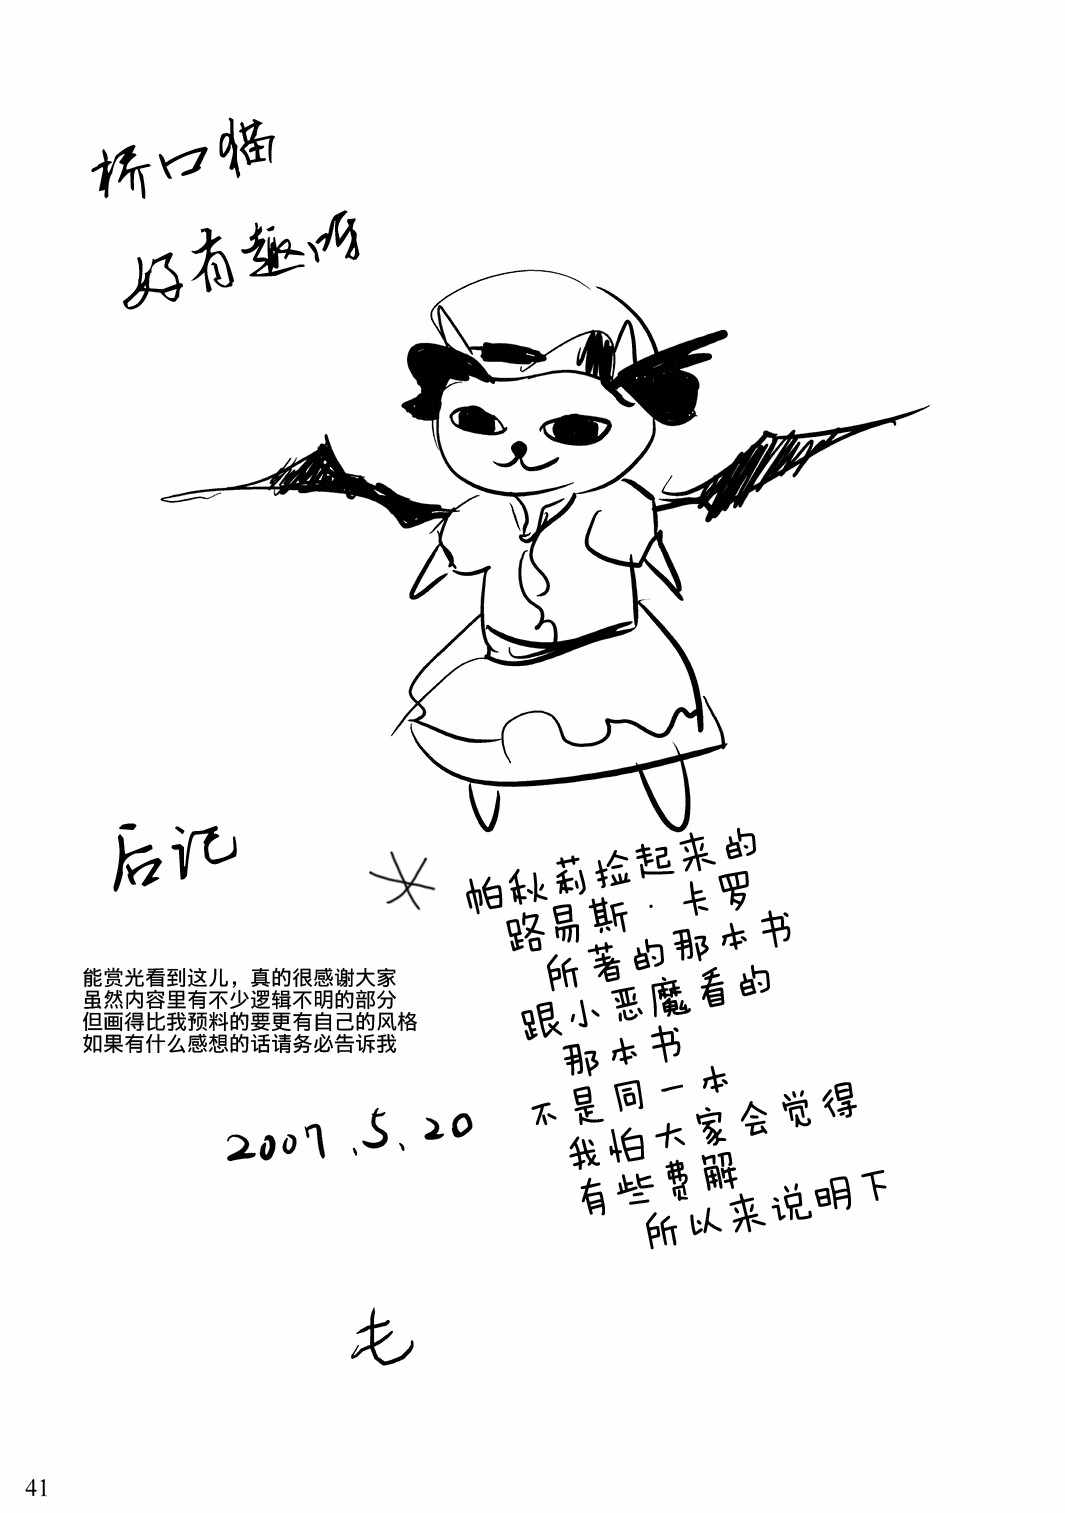 桥口猫
好有趣呀
后记
能赏光看到这儿，真的很感谢大家
虽然内容里有不少逻辑不明的部分
但画得比我预料的要更有自己的风格
如果有什么感想的话请务必告诉我
2007.5.20
帕秋莉捡起来的
路易斯·卡罗
所著的那本书
跟小恶魔看的
那本书
不是同一本
我怕大家会觉得
有些费解
所以来说明下
毛
41